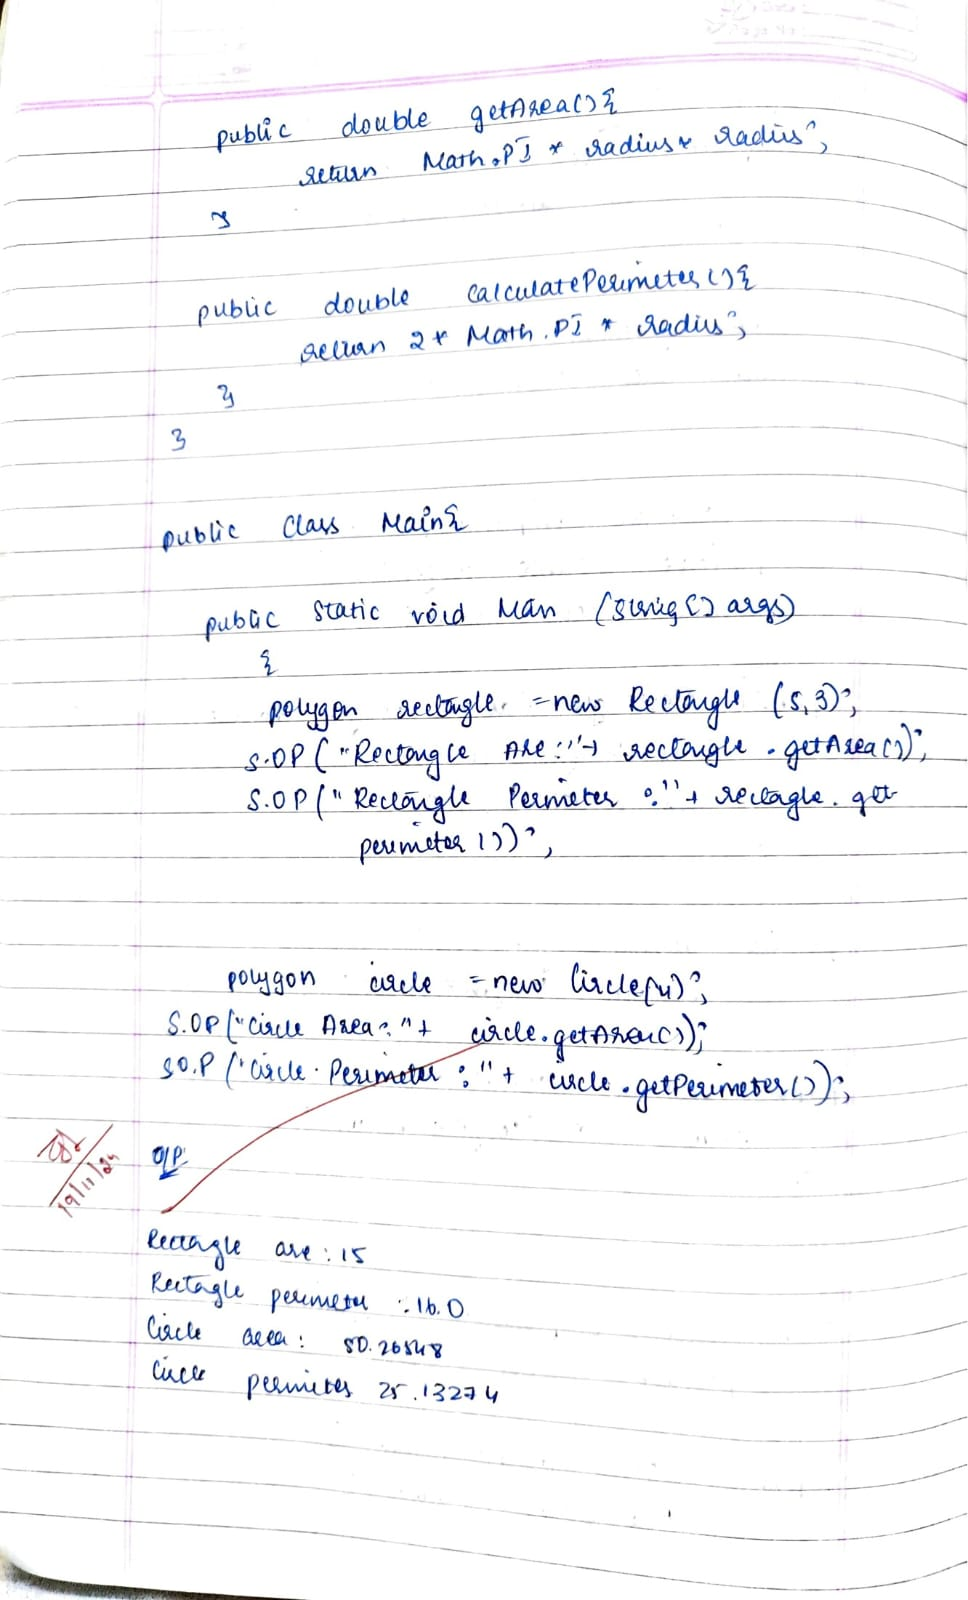 public double getArea(){
return Math.PI * radius * radius;
}
public double calculatePerimeter(){
return 2 * Math.PI * radius;
}
}
public Class Main{
public Static void Man (String[] args)
{
polygon rectangle = new Rectangle (5,3);
S.OP ("Rectangle Are:"+ rectangle.getArea());
S.OP ("Rectangle Permeter :"+ rectagle.get
perimeter ());
polygon circle = new Circle(4);
S.OP ("Circle Area: "+ circle.getArea());
SO.P ("Circle Perimeter :"+ circle.getPerimeter());
19/11/24
O/P:
Rectagle are : 15
Rectagle perimeter : 16.0
Circle area : 50.26548
Circle perimeter 25.13274